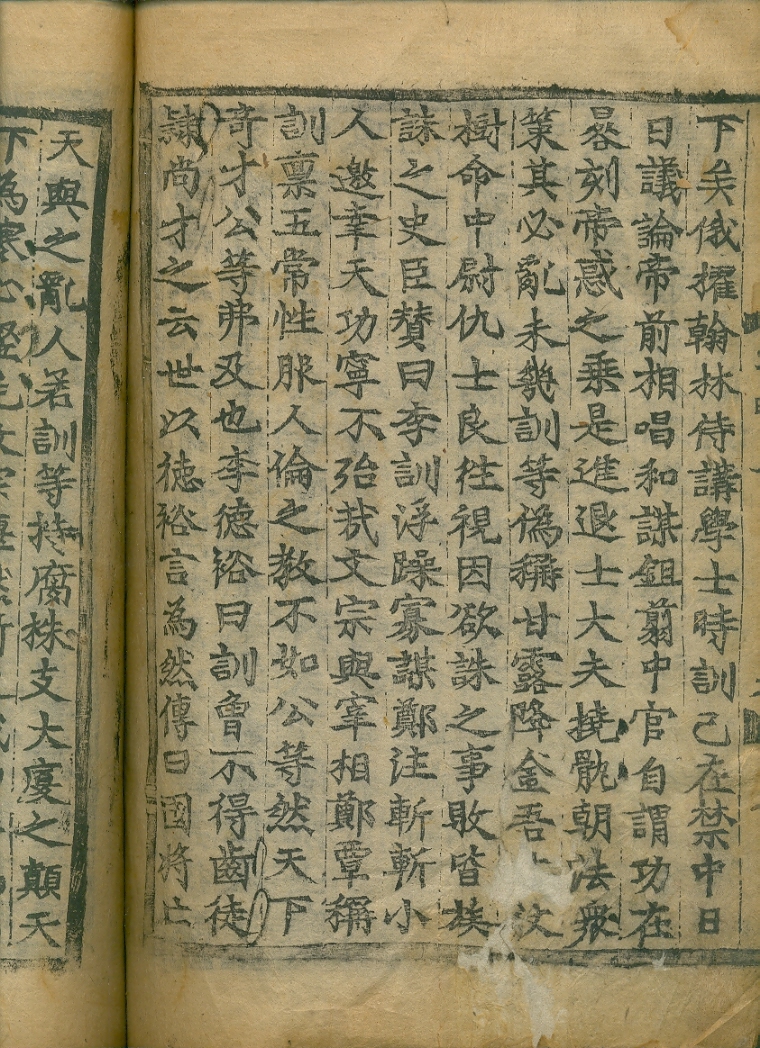 下矣俄擢翰林侍講學士時訓已在禁中日
日議論帝前相唱和謀鉏翦中官自謂功在
晷刻帝惑之乗是進退士大夫撓骩朝法衆
策其必亂未幾訓等偽稱甘露降金吾
樹命中尉仇士良徃視因欲誅之事敗皆族
誅之史臣賛曰李訓浮躁寡謀鄭注斬斬小
人邀幸天功寧不殆哉文宗與宰相鄭覃稱
訓禀五常性服人倫之教不如公等然天下
奇才公等弗及也李德裕曰訓曾不得齒徒
隷尚才之云世以徳裕言為然傳曰國将亡
天與之亂人若訓等持腐株支大廈之顚天
下為寒心竪毛文宗